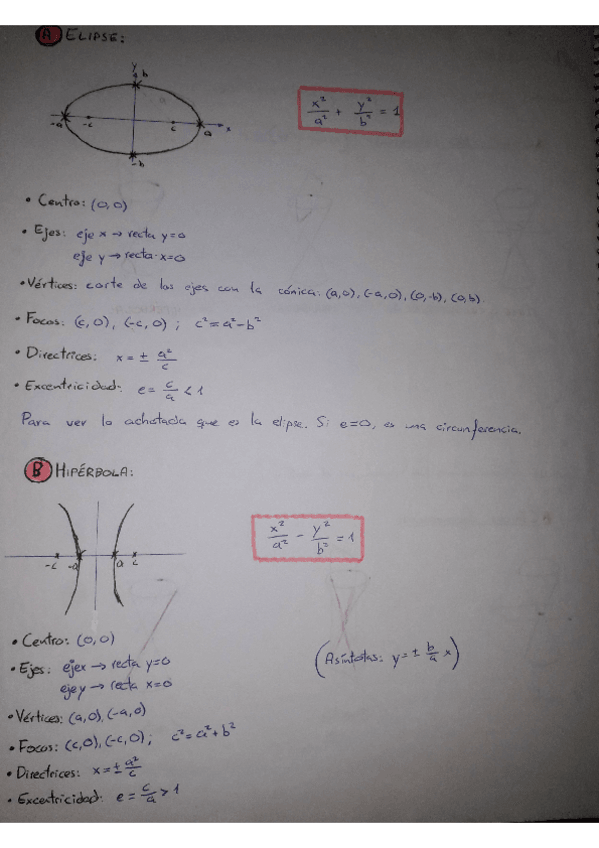 A ELIPSE:
y
b
-a -c c a x
-b
x²/a² + y²/b² = 1
• Centro: (0,0)
• Ejes: eje x → recta y=0
eje y → recta x=0
• Vértices: corte de los ejes con la cónica: (a,0), (-a,0), (0,-b), (0,b).
• Focos: (c,0), (-c,0) ; c²=a²-b²
• Directrices: x = ± a²/c
• Excentricidad: e = c/a < 1
Para ver lo achatada que es la elipse. Si e=0, es una circunferencia.
B HIPÉRBOLA:
-c -a a c
x²/a² - y²/b² = 1
• Centro: (0,0)
• Ejes: eje x → recta y=0
eje y → recta x=0
(Asíntotas: y = ± b/a x)
• Vértices: (a,0), (-a,0)
• Focos: (c,0), (-c,0) ; c²=a²+b²
• Directrices: x = ± a²/c
• Excentricidad: e = c/a > 1